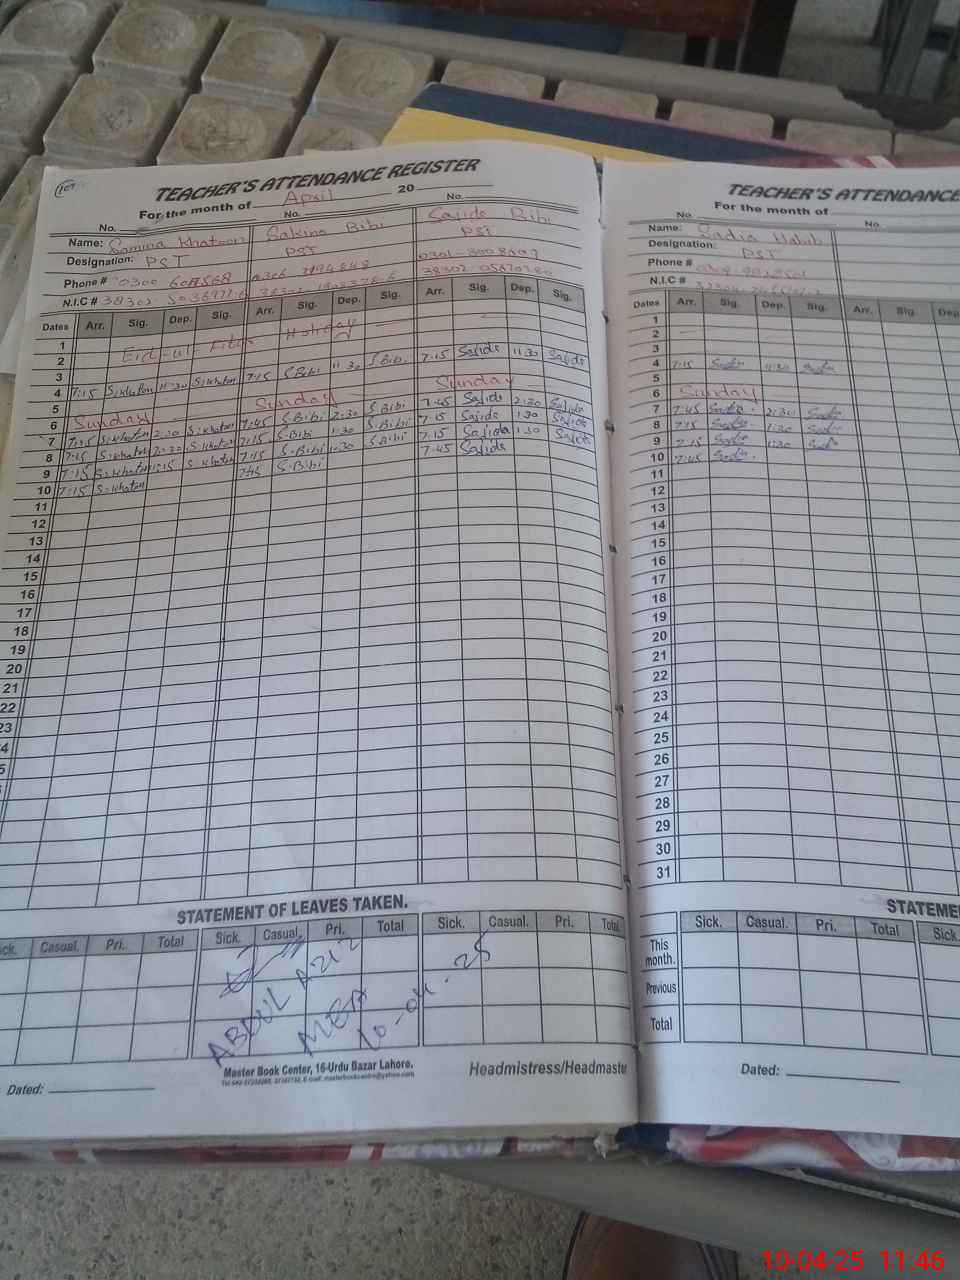 107
TEACHER'S ATTENDANCE REGISTER
For the month of April 20
No. No. No.
Name: Samina Khatoon Sakina Bibi Sajida Bibi
Designation: PST PST PST
Phone # 0300
N.I.C #
Dates Arr. Sig. Dep. Sig. Arr. Sig. Dep. Sig. Arr. Sig. Dep. Sig.
1
2 Eid-ul-Fiter Holiday
3
4 7:15 S.khaton 11:30 S.khaton 7:15 S Bibi 11:30 S Bibi 7:15 Sajida 11:30 Sajida
5
6 Sunday Sunday Sunday
7 7:15 S.khaton 2:30 S.khaton 7:45 S Bibi 2:30 S Bibi 7:45 Sajida 2:30 Sajida
8 7:15 S.khaton S.khaton 7:15 S-Bibi 1:30 S Bibi 7:15 Sajida 1:30 Sajida
9 7:15 S.khaton 1:15 S.khaton 7:15 S-Bibi 1:30 S Bibi 7:15 Sajida 1:30 Sajida
10 7:15 S.khaton 7:45 S-Bibi 7:45 Sajida
11
12
13
14
15
16
17
18
19
20
21
22
23
STATEMENT OF LEAVES TAKEN.
Casual. Pri. Total Sick. Casual. Pri. Total Sick. Casual. Pri. Total
ABDUL AZIZ
MEA
10-04-25
Master Book Center, 16-Urdu Bazar Lahore.
Headmistress/Headmaster
Dated:
TEACHER'S ATTENDANCE
For the month of
No. No.
Name: Sadia Habib
Designation: PST
Phone #
N.I.C #
Dates Arr. Sig. Dep. Sig. Arr. Sig. Dep.
1
2
3
4 7:15 Sadia 11:30 Sadia
5
6 Sunday
7 7:45 Sadia 2:30 Sadia
8 7:15 Sadia 1:30 Sadia
9 7:15 Sadia 1:30 Sadia
10 7:45 Sadia
11
12
13
14
15
16
17
18
19
20
21
22
23
24
25
26
27
28
29
30
31
Sick. Casual. Pri. Total Sick.
This month.
Previous
Total
Dated:
10-04-25 11:46